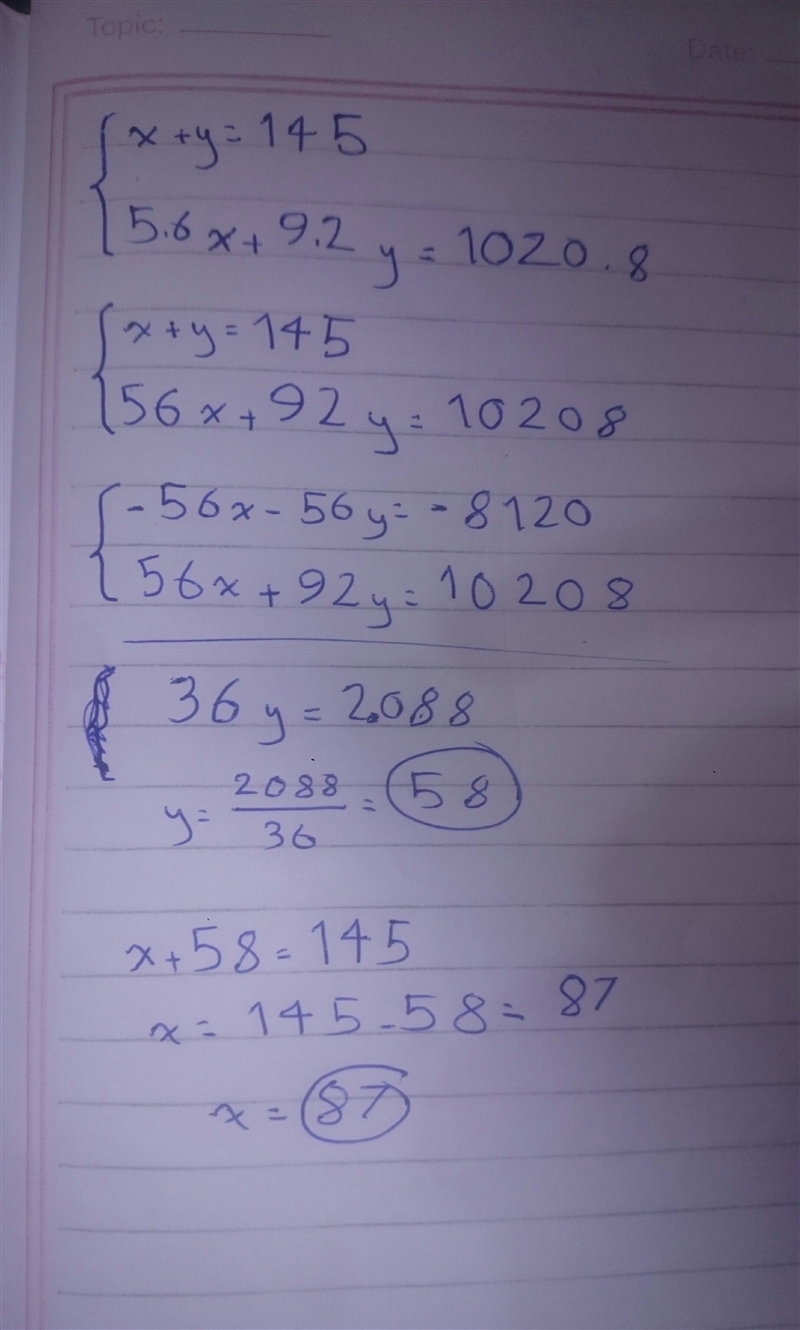 Topic:
Date:
x + y = 145
5.6x + 9.2y = 1020.8
x + y = 145
56x + 92y = 10208
-56x - 56y = -8120
56x + 92y = 10208
36y = 2088
y = 2088/36 = 58
x + 58 = 145
x = 145 - 58 = 87
x = 87